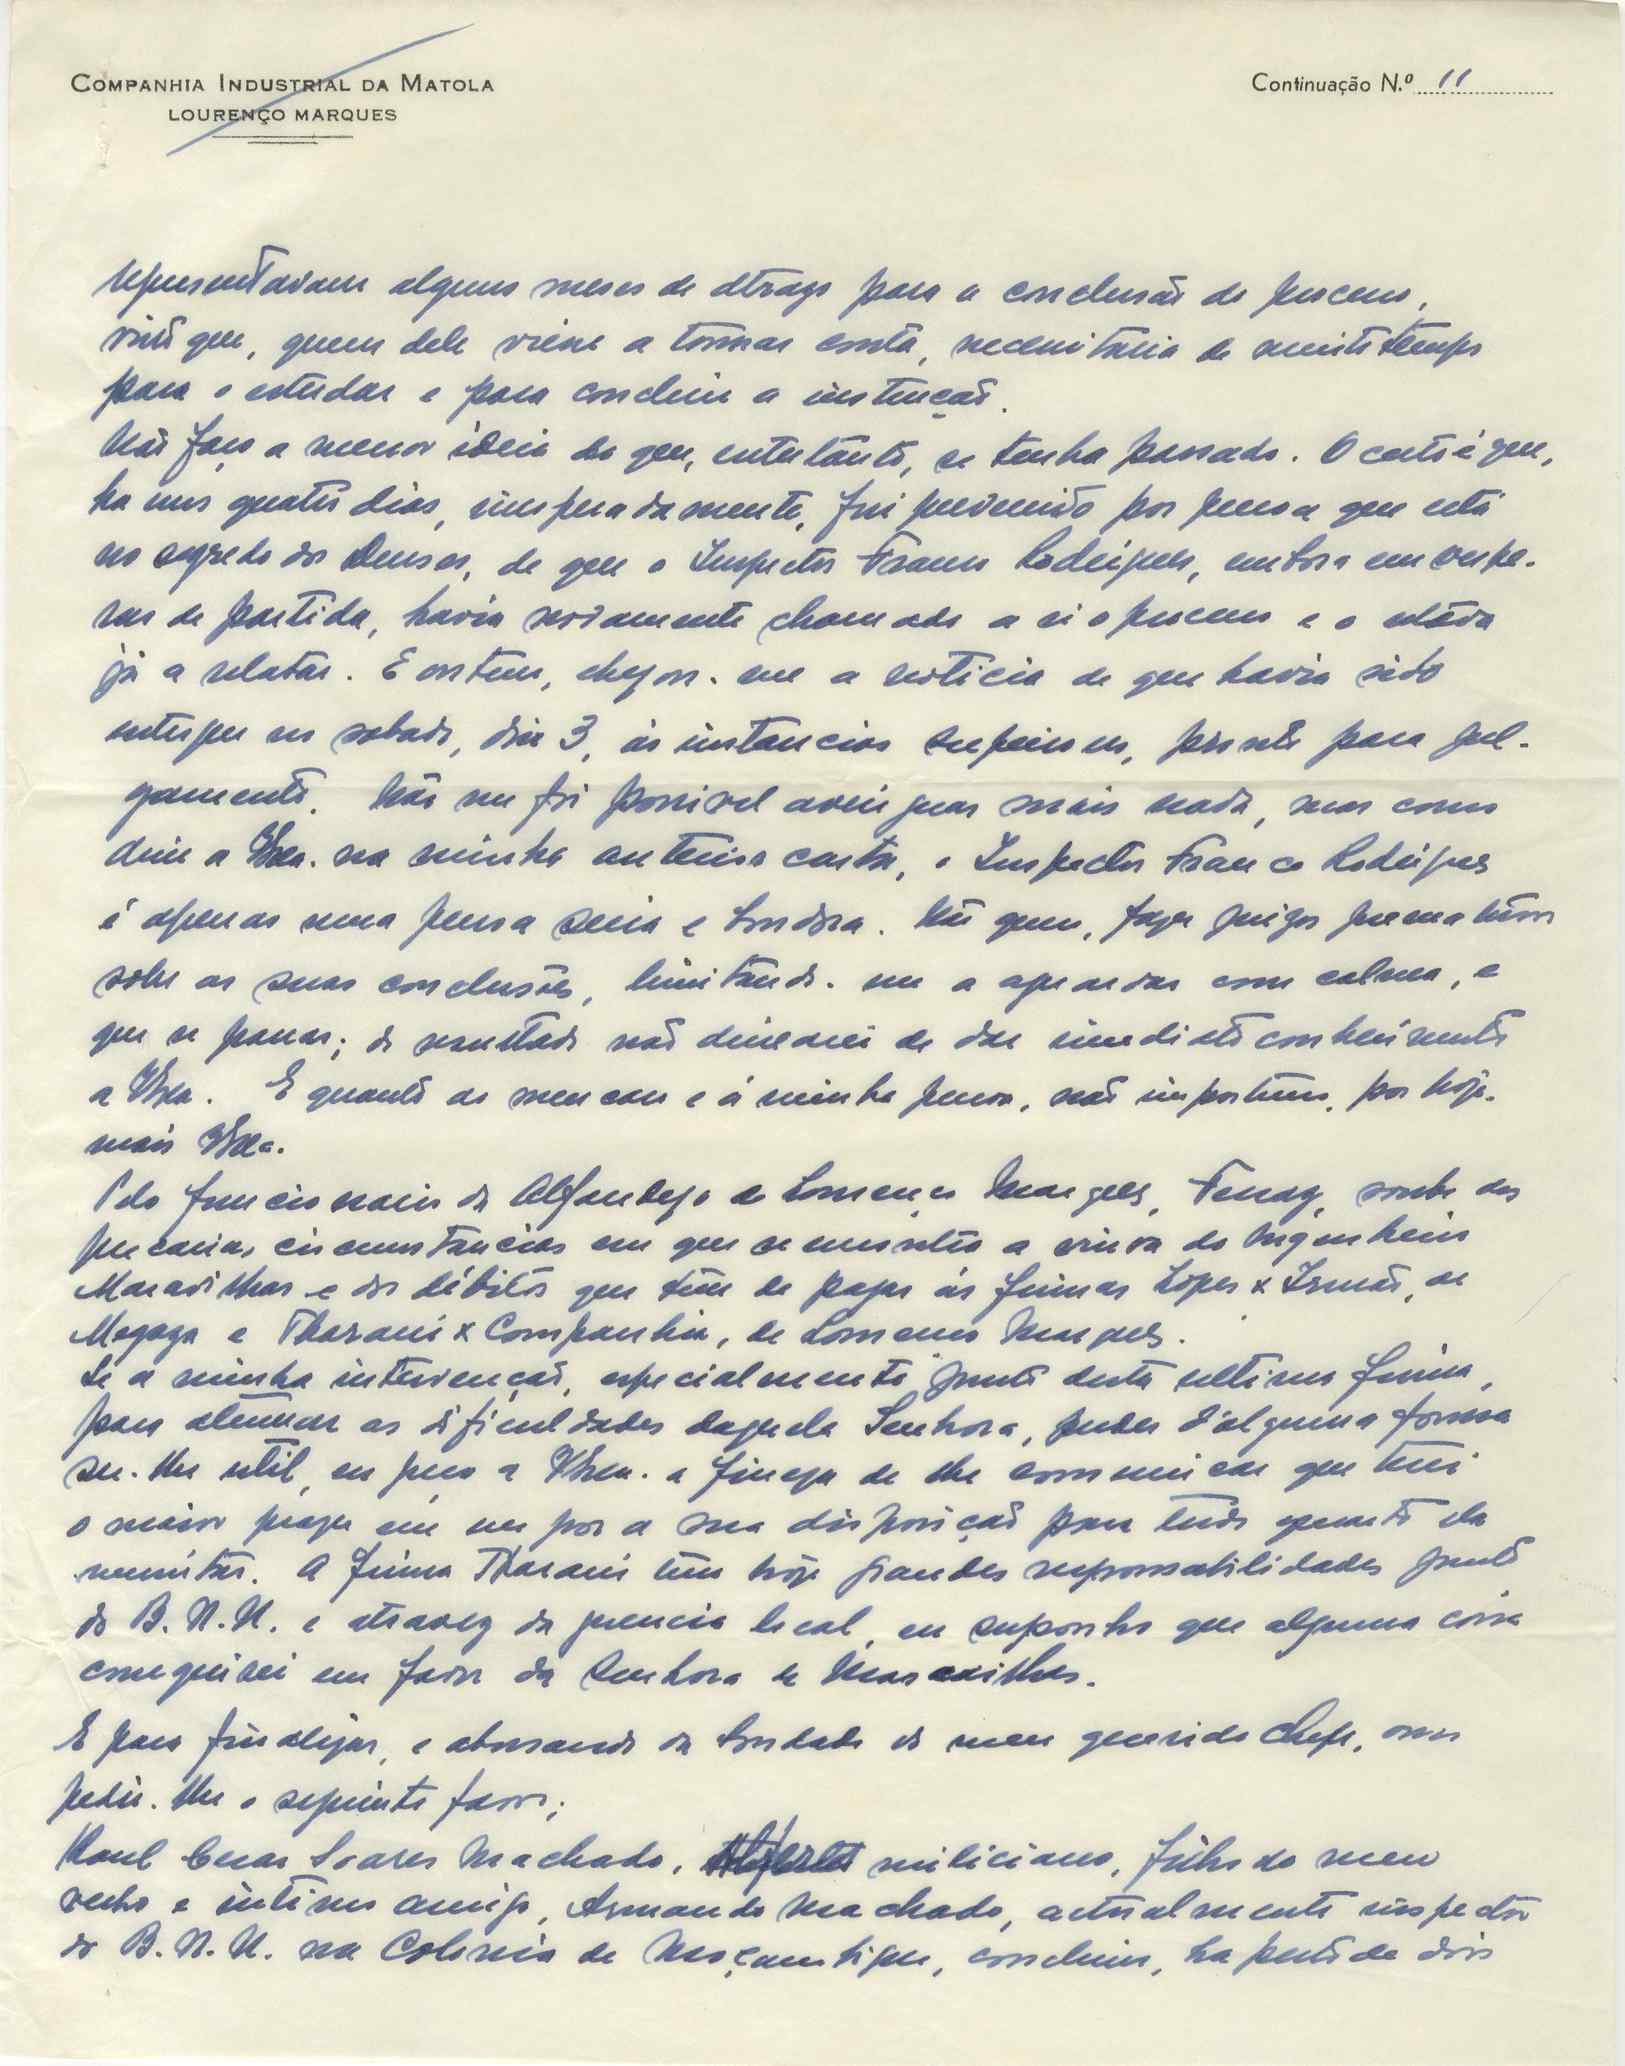 COMPANHIA INDUSTRIAL DA MATOLA
LOURENÇO MARQUES
Continuação N.º 11
representavam alguns meses de atrazo para a conclusão do processo,
visto que, quem dele viesse a tomar conta, necessitaria de muito tempo
para o estudar e para concluir a instrução.
Não faço a menor ideia do que, entretanto, se tenha passado. O certo é que,
ha uns quatro dias, inesperadamente, fui prevenido por pessoa que está
no segredo dos Deuses, de que o Inspector Franco Rodrigues, embora em vespe-
ras de partida, havia novamente chamado a si o processo e o estava
já a relatar. E ontem, chegou-me a noticia de que havia sido
entregue no sabado, dia 3, ás instancias superiores, pronto para jul-
gamento. Não me foi possivel averiguar mais nada, mas como
disse a VExa. na minha anterior carta, o Inspector Franco Rodrigues
é apenas uma pessoa séria e bondosa. Não quero, fazer juizos prematuros
sobre as suas conclusões, limitando-me a aguardar com calma, o
que se passar; do resultado não deixarei de dar imediato conhecimento
a VExa. E quanto ao meu caso e á minha pessoa, não importuno, por hoje,
mais VExa.
Pelo funcionario da Alfandega de Lourenço Marques, Ferraz, soube das
precarias circunstancias em que se encontra a viuva do Engenheiro
Maravilhas e dos débitos que tem de pagar ás firmas Lopes & Irmão, de
Magaza e Tharani & Companhia, de Lourenço Marques.
Se a minha intervenção, especialmente junto desta ultima firma,
para atenuar as dificuldades daquela Senhora, puder d'alguma forma
ser-lhe util, eu peço a VExa. a fineza de lhe comunicar que terei
o maior prazer em me por a sua disposição para tudo quanto ela
necessitar. A firma Tharani tem hoje grandes responsabilidades junto
do B.N.U. e atravez da gerencia local, eu suponho que alguma coisa
conseguirei em favor da Senhora de Maravilhas.
E para finalizar, e abusando da bondade do meu querido Chefe, ouso
pedir-lhe o seguinte favor;
Raul Cesar Soares Machado, miliciano, filho do meu
velho e intimo amigo, Armando Machado, actualmente inspector
do B.N.U. na Colonia de Moçambique, concluiu, ha perto de dois